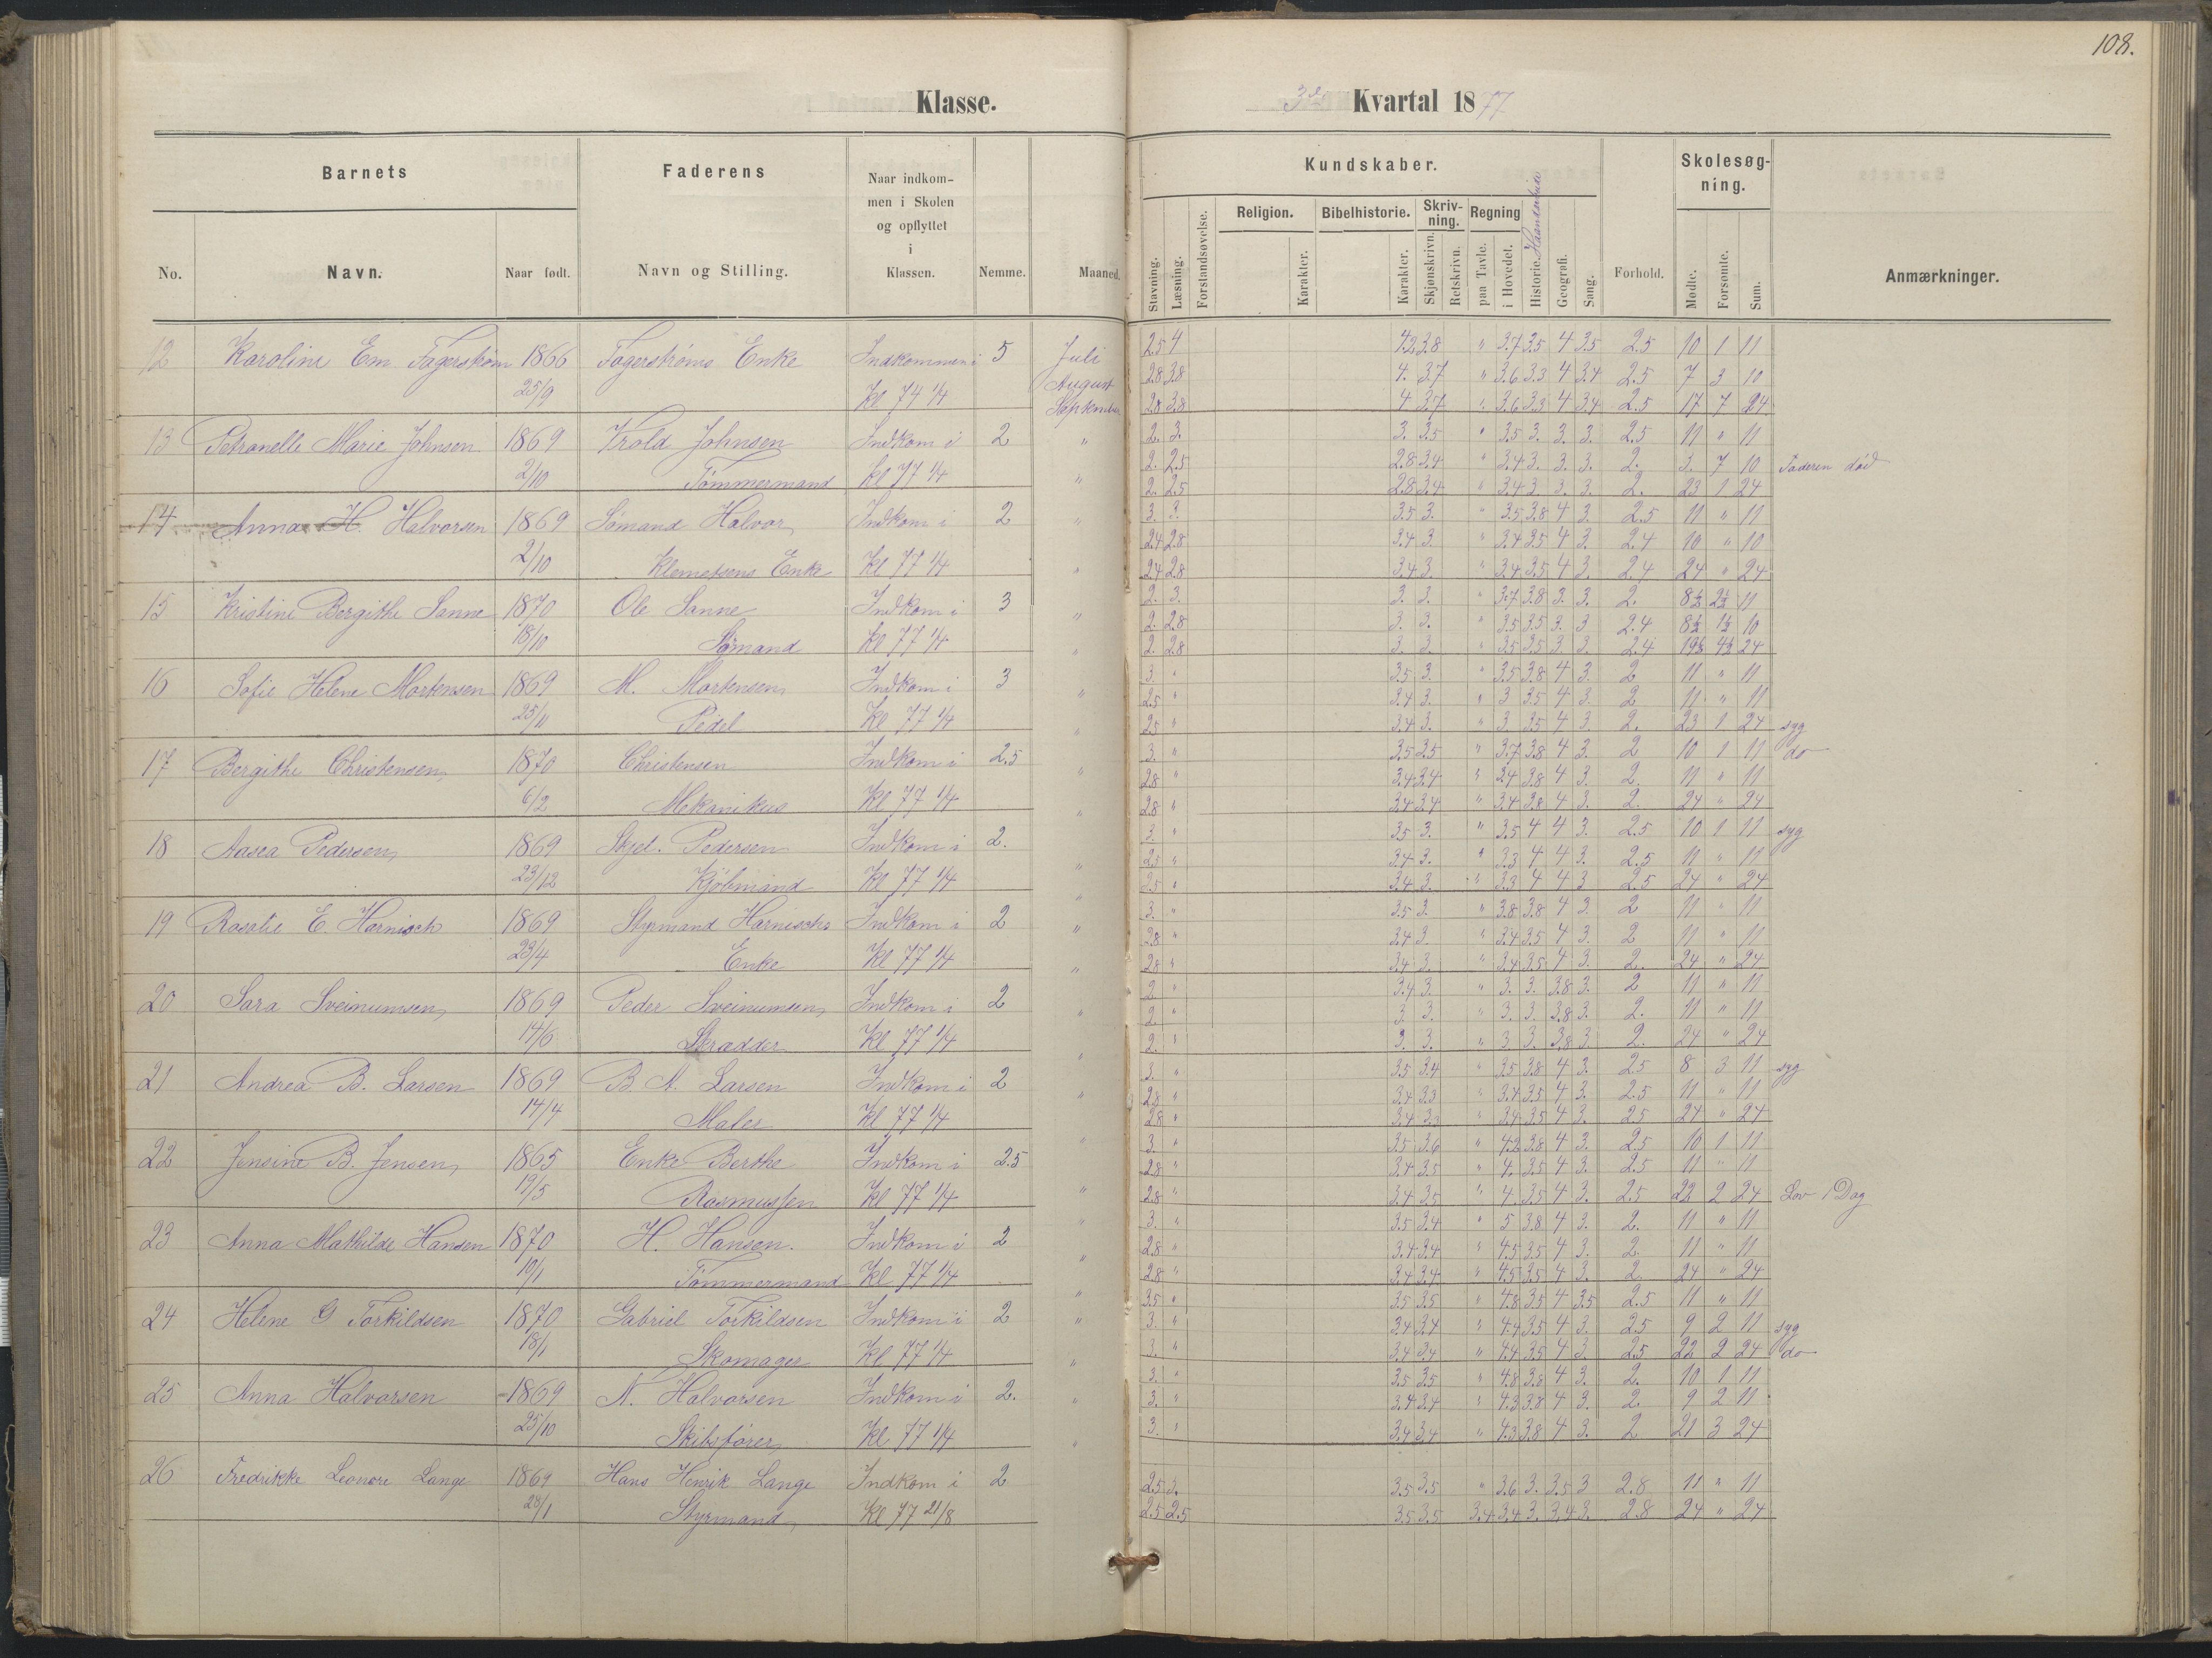 108.
Klasse.
3de Kvartal 1877
Barnets
Faderens
Naar indkom-
men i Skolen
og opflyttet
i
Klassen.
Nemme.
Maaned.
No.
Navn.
Naar født.
Navn og Stilling.
Kundskaber.
Stavning.
Læsning.
Forstandsøvelse.
Religion.
Karakter.
Bibelhistorie.
Karakter.
Skriv-
ning.
Skjønskrivn.
Retskrivn.
Regning
paa Tavle.
i Hovedet.
Historie.
Haandarbeide
Geografi.
Sang.
Forhold.
Skolesøg-
ning.
Mødte.
Forsømte.
Sum.
Anmærkninger.
12 Karoline Em. Fagerstrøm 1866 Fagerstrøms Enke Indkommen i 5 Juli 2.5 4 4.2 3.8 " 3.7 3.5 4 3.5 2.5 10 1 11
25/9 Kl 74 1/4 August 2.8 3.8 4. 3.7 " 3.6 3.3 4 3.4 2.5 7 3 10
September 2.8 3.8 4 3.7 " 3.6 3.3 4 3.4 2.5 17 7 24
13 Petronelle Marie Johnsen 1869 Krold Johnsen Indkom i 2 " 2. 3. 3. 3.5 " 3.5 3. 3. 3. 2.5 11 " 11
2/10 Tømmermand Kl 77 1/4 " 2. 2.5 2.8 3.4 " 3.4 3. 3. 3. 2. 3. 7 10 Faderen død
2. 2.5 2.8 3.4 " 3.4 3 3. 3. 2. 23 1 24
14 Anna H. Halvorsen 1869 Sømand Halvor Indkom i 2 " 3. 3.5 3. " 3.5 3.8 4 3. 2.5 11 " 11
2/10 Klemetsens Enke Kl 77 1/4 " 2.4 2.8 3.4 3 " 3.4 3.5 4 3. 2.4 10 " 10
2.4 2.8 3.4 3. " 3.4 3.5 4 3. 2.4 24 " 24
15 Kristine Bergithe Sanne 1870 Ole Sanne Indkom i 3 " 2. 3. 3. 3. " 3.7 3.8 3. 3. 2. 8½ 2½ 11
18/10 Sømand Kl 77 1/4 " 2. 2.8 3. 3. " 3.5 3.5 3. 3 2.4 8½ 1½ 10
2. 2.8 3. 3. " 3.5 3.5 3. 3. 2.4 19½ 4½ 24
16 Sofie Helene Mortensen 1869 M. Mortensen Indkom i 3 " 3. " 3.5 3. " 3.5 3.8 4 3. 2 11 " 11
25/11 Pedel Kl 77 1/4 " 2.5 " 3.4 3. " 3 3.5 4 3. 2 11 " 11
2.5 " 3.4 3. " 3 3.5 4 3. 2. 23 1 24 syg
17 Bergithe Christensen 1870 Christensen Indkom i 2.5 " 3. " 3.5 3.5 " 3.7 3.8 4 3. 2 10 1 11 do
6/2 Mekanikus Kl 77 1/4 " 2.8 " 3.4 3.4 " 3.4 3.8 4 3. 2. 11 " 11
2.8 " 3.4 3.4 " 3.4 3.8 4 3. 2. 24 " 24
18 Aasea Pedersen 1869 Skjel. Pedersen Indkom i 2. " 3. " 3.5 3. " 3.5 4 4 3. 2.5 10 1 11 syg
23/12 Kjøbmand Kl 77 1/4 " 2.5 " 3.4 3. " 3.3 4 4 3. 2.5 11 " 11
2.5 " 3.4 3. " 3.3 4 4 3 2.5 24 " 24
19 Rosalie E. Harnisch 1869 Styrmand Harnischs Indkom i 2 " 3. " 3.5 3. " 3.8 3.8 4 3. 2 11 " 11
23/4 Enke Kl 77 1/4 " 2.8 " 3.4 3. " 3.4 3.5 4 3. 2 11 " 11
2.8 " 3.4 3. " 3.4 3.5 4 3. 2. 24 " 24
20 Sara Sveinumsen 1869 Peder Sveinumsen Indkom i 2 " 2 " 3.4 3. " 3. 3. 3.8 3. 2 11 " 11
14/6 Skradder Kl 77 1/4 " 2. " 3 3. " 3. 3. 3.8 3. 2. 11 " 11
2. " 3. 3. " 3 3. 3.8 3 2. 24 " 24
21 Andrea B. Larsen 1869 B. A. Larsen Indkom i 2 " 3. " 3.5 3.4 " 3.5 3.8 4 3. 2.5 8 3 11 syg
14/4 Maler Kl 77 1/4 " 2.8 " 3.4 3.3 " 3.4 3.5 4 3. 2.5 11 " 11
2.8 " 3.4 3.3 " 3.4 3.5 4 3. 2.5 24 " 24
22 Jensine B. Jensen 1865 Enke Berthe Indkom i 2.5 " 3. " 3.5 3.6 " 4.2 3.8 4 3. 2.5 10 1 11
19/5 Rasmussen Kl 77 1/4 " 2.8 " 3.4 3.5 " 4. 3.5 4 3. 2.5 11 " 11
2.8 " 3.4 3.5 " 4. 3.5 4 3. 2.5 22 2 24 Lov 1 Dag
23 Anna Mathilde Hansen 1870 H. Hansen. Indkom i 2 " 3. " 3.5 3.4 " 5 3.8 4 3. 2. 11 " 11
10/1 Tømmermand Kl 77 1/4 " 2.8 " 3.4 3.4 " 4.5 3.5 4 3. 2. 11 " 11
2.8 " 3.4 3.4 " 4.5 3.5 4 3. 2. 24 " 24
24 Helene G Torkildsen 1870 Gabriel Torkildsen Indkom i 2 " 3.5 " 3.5 3.5 " 4.8 3.5 4 3.5 2.5 11 " 11
18/1 Skomager Kl 77 1/4 " 3. " 3.4 3.4 " 4.4 3.5 4 3. 2.5 9 2 11 syg
3. " 3.4 3.4 " 4.4 3.5 4 3. 2.5 22 2 24 do
25 Anna Halvorsen 1869 N. Halvorsen Indkom i 2. " 3. " 3.5 3.5 " 4.8 3.8 4 3. 2. 10 1 11
25/10 Skibsfører Kl 77 1/4 " 3. " 3.4 3.4 " 4.3 3.8 4 3. 2. 9 2 11
3. " 3.4 3.4 " 4.3 3.8 4 3. 2 21 3 24
26 Fredrikke Leonore Lange 1869 Hans Henrik Lange Indkom i 2 2.5 3. 3.5 3.5 " 3.6 3. 3.5 3 2.8 11 " 11
28/1 Styrmand Kl 77 21/8 2.5 2.5 3.5 3.5 3.4 3.4 3. 3.4 3. 2.8 24 " 24